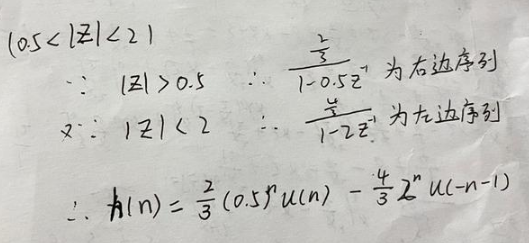 (0.5<|Z|<2)
∵ |Z|>0.5 ∴ \frac{\frac{2}{3}}{1-0.5Z^{-1}} 为右边序列
又∵ |Z|<2 ∴ \frac{\frac{4}{3}}{1-2Z^{-1}} 为左边序列
∴ h(n) = \frac{2}{3}(0.5)^n u(n) - \frac{4}{3} 2^n u(-n-1)